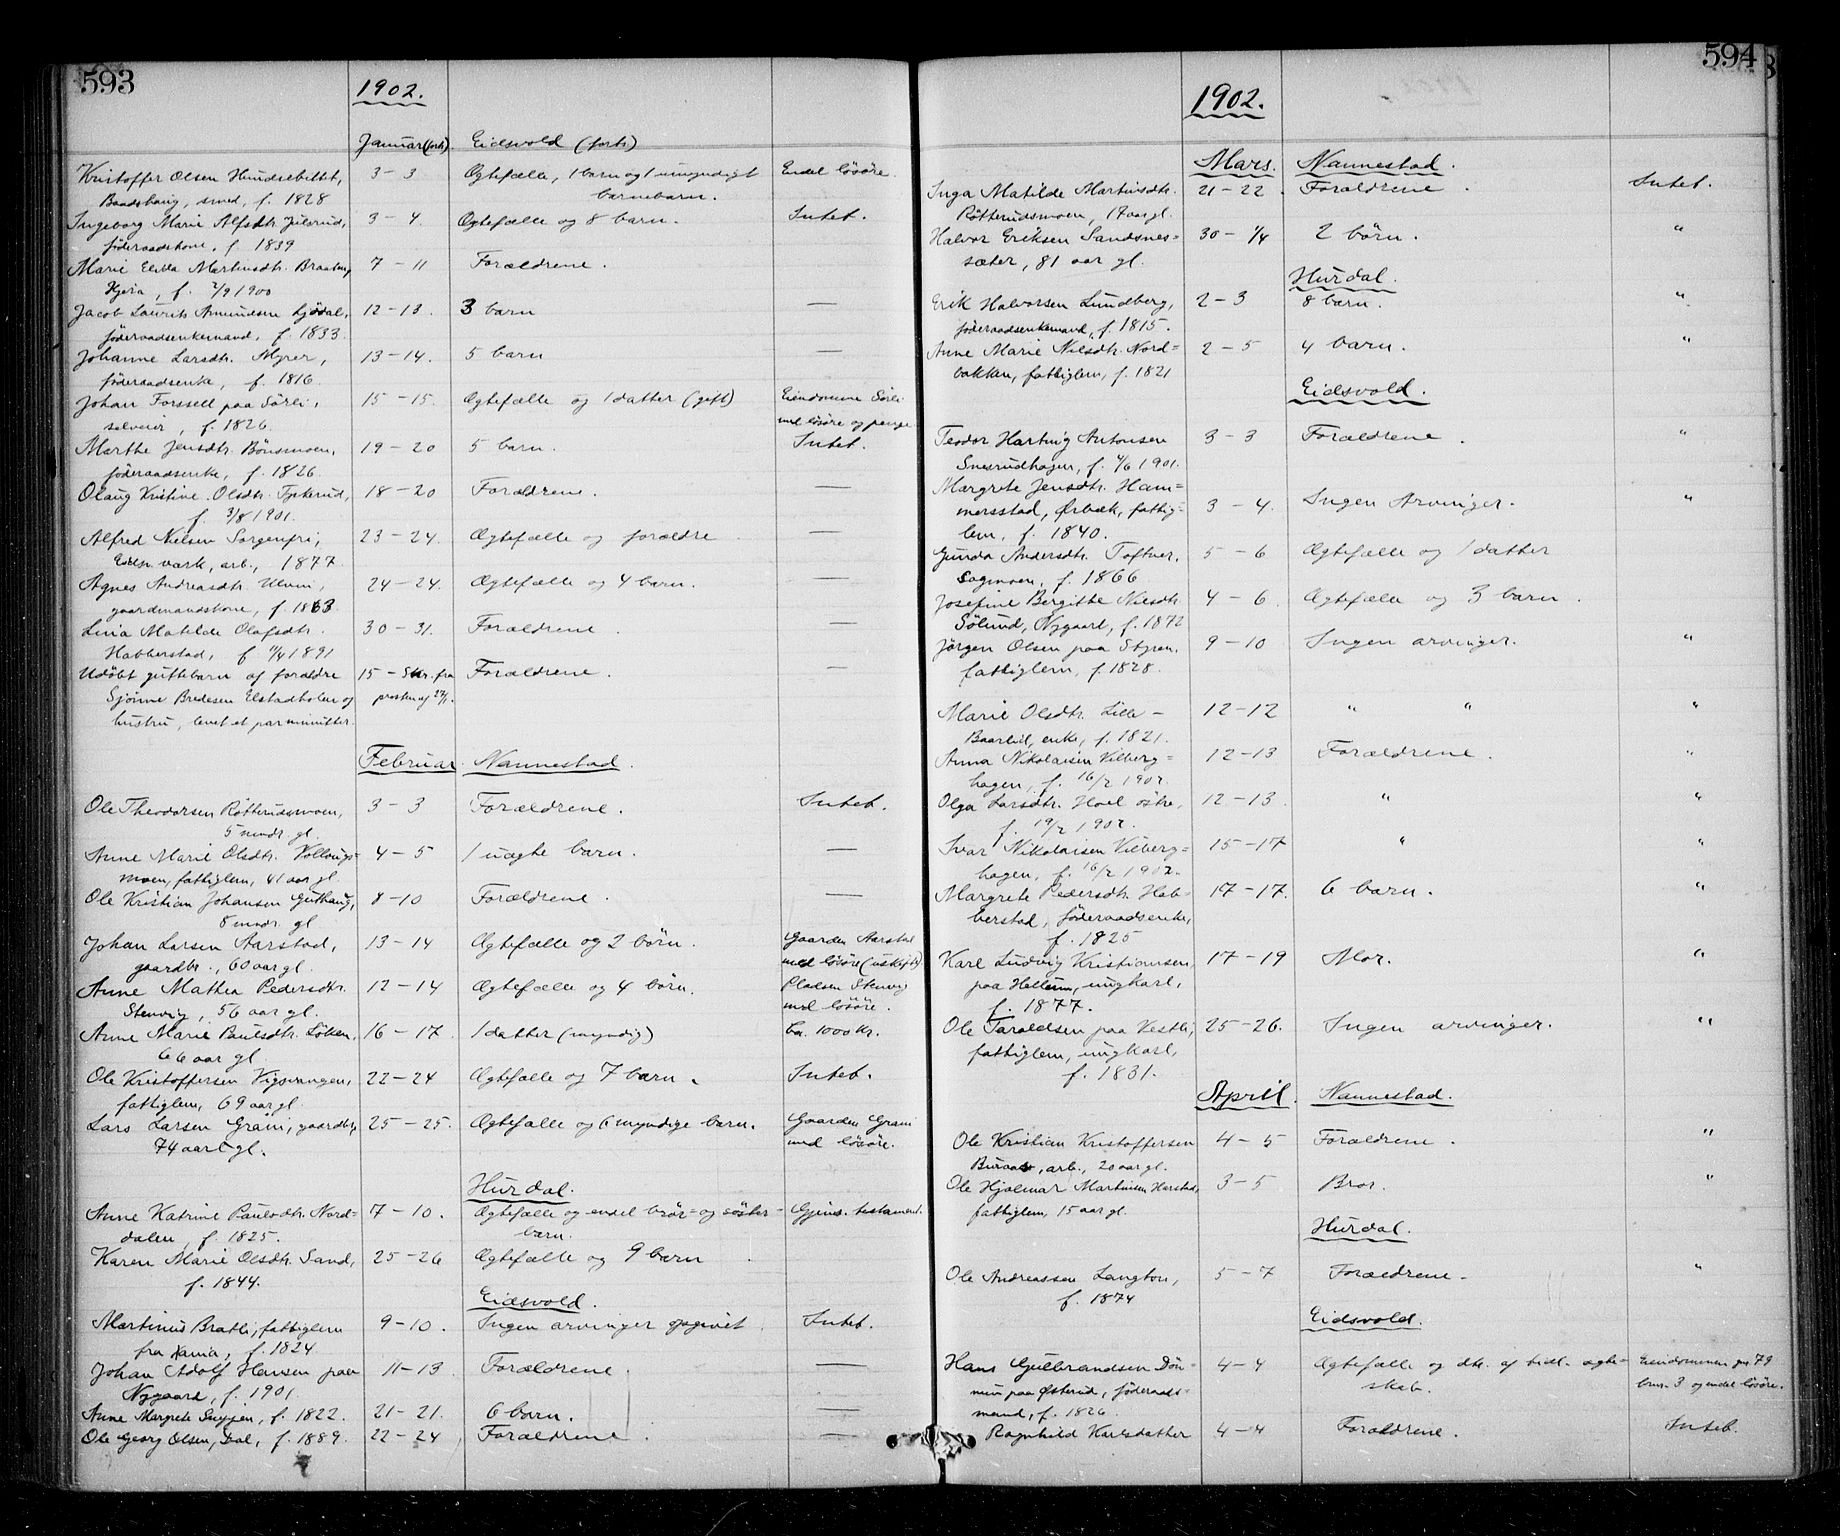 593
1902.
Januar (forts). Eidsvold (forts)
Kristoffer Olsen Hundsebittet, 3-3 Ægtefælle, 1 barn og 1 umyndigt Endel løsøre.
Baadshaug, smed, f. 1828 barnebarn.
Ingeborg Marie Alfsdtr. Julsrud, 3-4. Ægtefælle og 8 barn. Intet.
føderaadskone, f. 1839
Marie Elida Martinsdtr. Braaten, 7-11 Forældrene.
Hjera, f. 2/9 1900
Jacob Laurits Amundsen Ljødal, 12-13. 3 barn —
føderaadsenkemand, f. 1833.
Johanne Larsdtr. Myrer, 13-14. 5 barn —
føderaadsenke, f. 1816.
Johan Forssell paa Sørli, 15-15. Ægtefælle og 1 datter (gift) Eiendomme Sørli
selveier, f. 1826. med løsøre og penge
Marthe Jensdtr. Bønsmoen, 19-20 5 barn. Intet.
føderaadsenke, f. 1826.
Olaug Kristine Olsdtr. Tysterud, 18-20 Forældrene. —
f. 3/8 1901.
Alfred Nielsen Sorgenfri, 23-24. Ægtefælle og forældre —
Eidsv. værk, arb., 1877
Agnes Andreasdtr. Ulvin, 24-24. Ægtefælle og 4 barn. —
gaardmandskone, f. 1863.
Lina Matilde Olafsdtr. 30-31. Forældrene. —
Habberstad, f. 11/4 1891
Udøbt guttebarn af forældre 15 - Skr. fra Forældrene. —
Sjønne Bredesen Elstadholen og prosten af 27/1.
hustru, levet et par minutter.
Februar. Nannestad.
Ole Theodorsen Røtterudsmoen, 3-3 Forældrene. Intet.
5 mndr. gl.
Anne Marie Olsdtr. Vollaugs= 4-5 1 uægte barn. —
moen, fattiglem, 41 aar gl.
Ole Kristian Johansen Guthaug, 8-10 Forældrene. —
8 mndr. gl
Johan Larsen Aarstad, 13-14 Ægtefælle og 2 börn. Gaarden Aarstad
gaardbr., 60 aar gl. med løsøre (uskiftet)
Anne Mathea Pedersdtr. 12-14 Ægtefælle og 4 börn. Pladsen Stenvig
Stenvig, 56 aar gl. med løsøre.
Anne Marie Paulsdtr. Løken, 16-17. 1 datter (myndig) Ca. 1000 Kr.
66 aar gl.
Ole Kristoffersen Vigsvangen, 22-24 Ægtefælle og 7 barn. Intet.
fattiglem, 69 aar gl.
Lars Larsen Grani, gaardbr., 25-25. Ægtefælle og 6 myndige barn. Gaarden Grani
74 aar gl. med løsøre.
Hurdal.
Anne Katrine Paulsdtr. Nord= 7-10. Ægtefælle og endel brör= og söster= Gjens. testament.
dalen, f. 1825. barn.
Karen Marie Olsdtr. Sand, 25-26 Ægtefælle og 9 barn
f. 1844.
Eidsvold.
Martinus Bratli, fattiglem 9-10. Ingen arvinger opgivet. Intet.
fra Xania, f. 1824
Johan Adolf Hansen paa 11-13 Forældrene. —
Nygaard, f. 1901.
Anne Margrete Snippen, f. 1822. 21-21. 6 barn. —
Ole Georg Olsen, Dal, f. 1889. 22-24 Forældrene. —
594
1902.
Mars. Nannestad.
Inga Matilde Martinsdtr. 21-22. Forældrene. Intet.
Røtterudsmoen, 17 aar gl.
Halvor Eriksen Sandsnes= 30-1/4 2 börn. "
sæter, 81 aar gl.
Hurdal.
Erik Halvorsen Lundberg, 2-3 8 barn. "
føderaadsenkemand, f. 1815.
Anne Marie Nilsdtr. Nord= 2-5 4 barn. "
bakken, fattiglem, f. 1821
Eidsvold.
Teodor Hartvig Antonsen 3-3 Forældrene. "
Snesrudhagen, f. 4/6 1901.
Margrete Jensdtr. Ham=
mersstad, Ørbæk, fattig= 3-4. Ingen Arvinger. "
lem, f. 1840.
Gunda Andersdtr. Toftner, 5-6 Ægtefælle og 1 datter
Sagmoen, f. 1866
Josefine Bergitte Nilsdtr. 4-6. Ægtefælle og 3 barn.
Sølund, Nygaard, f. 1872
Jørgen Olsen paa Styren, 9-10 Ingen arvinger. "
fattiglem, f. 1828.
Marie Olsdtr. Lille- 12-12 " " "
Baarlid, enke, f. 1821.
Anna Nikolaisen Vilberg= 12-13 Forældrene. "
hagen, f. 16/2 1902.
Olga Larsdtr. Hoel østre, 12-13. " "
f. 19/2 1902.
Ivar Nikolaisen Vilberg= 15-17 " "
hagen, f. 16/2 1902.
Margrete Pedersdtr. Hab- 17-17. 6 barn. "
berstad, føderaadsenke,
f. 1825
Karl Ludvig Kristiansen, 17-19 Mor. "
paa Hellum, ungkarl,
f. 1877.
Ole Taraldsen paa Vestli, 25-26. Ingen arvinger. "
fattiglem, ungkarl,
f. 1831.
April. Nannestad.
Ole Kristian Kristoffersen 4-5 Forældrene. "
Buraas, arb., 20 aar gl.
Ole Hjalmar Martinsen Harstad, 3-5 Bror. "
fattiglem, 15 aar gl.
Hurdal.
Ole Andreassen Langton, 5-7 Forældrene. "
f. 1874
Eidsvold.
Hans Gulbrandsen Dön= 4-4 Ægtefælle og dtr. af tidl. ægte= Eiendommen gr. 79
num paa Østerud, föderaads= skab. brn. 3 og endel løsøre.
mand, f. 1826.
Ragnhild Karlsdatter 4-4 Forældrene. Intet.